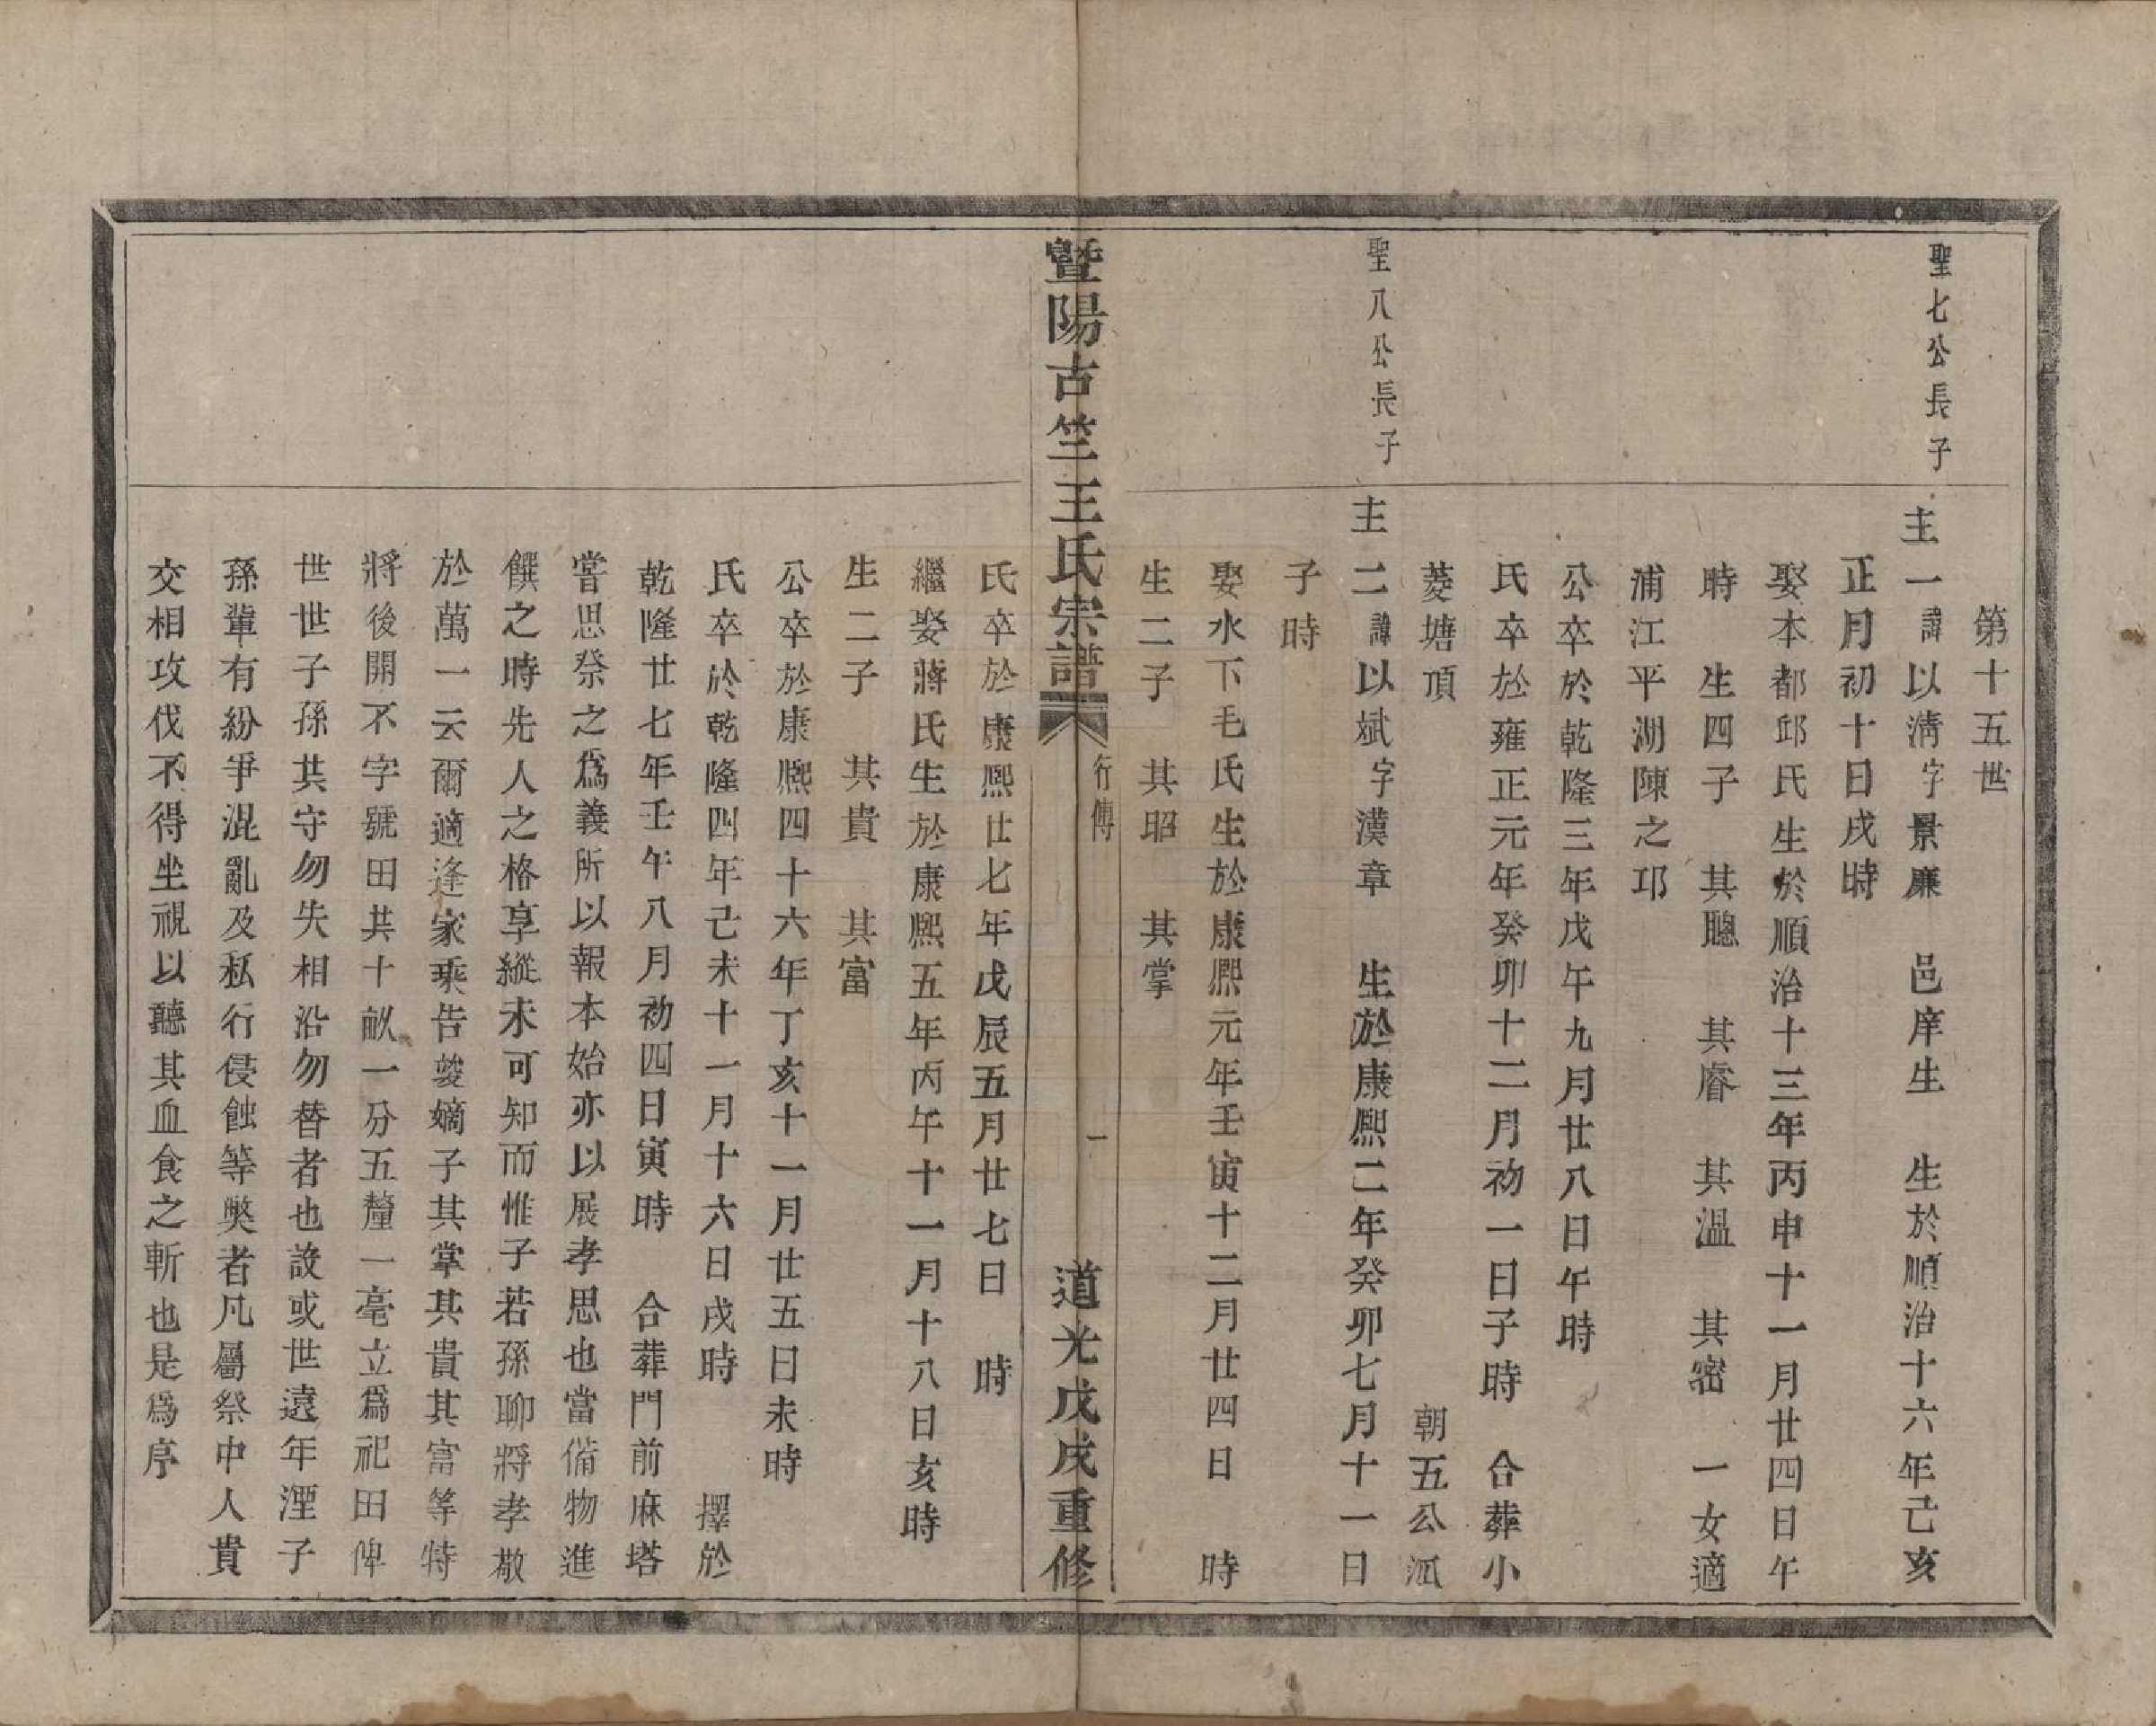 第十五世
聖七公長子
主一諱以淸字景廉　邑庠生　生於順治十六年己亥
正月初十日戌時
娶本都邱氏生於順治十三年丙申十一月廿四日午
時　生四子　其聰　其睿　其溫　其密　一女適
浦江平湖陳之邛
公卒於乾隆三年戊午九月廿八日午時
氏卒於雍正元年癸卯十二月初一日子時　合葬小
菱塘頂　朝五公派
聖八公長子
主二諱以斌字漢章　生於康熙二年癸卯七月十一日
子時
娶水下毛氏生於康熙元年壬寅十二月廿四日　時
生二子　其昭　其掌
暨陽古竺王氏宗譜　行傳　一　道光戊戌重修
氏卒於康熙廿七年戊辰五月廿七日　時
繼娶蔣氏生於康熙五年丙午十一月十八日亥時
生二子　其貴　其富
公卒於康熙四十六年丁亥十一月廿五日未時
氏卒於乾隆四年己未十一月十六日戌時　擇於
乾隆廿七年壬午八月初四日寅時　合葬門前麻塔
嘗思祭之爲義所以報本始亦以展孝思也當備物進
饌之時先人之格享縱未可知而惟子若孫聊將孝敬
於萬一云爾適逢家乘告竣嫡子其掌其貴其富等特
將後開不字號田共十畝一分五釐一毫立爲祀田俾
世世子孫共守勿失相沿勿替者也設或世遠年湮子
孫輩有紛爭混亂及私行侵蝕等獘者凡屬祭中人貴
交相攻伐不得坐視以聽其血食之斬也是爲序